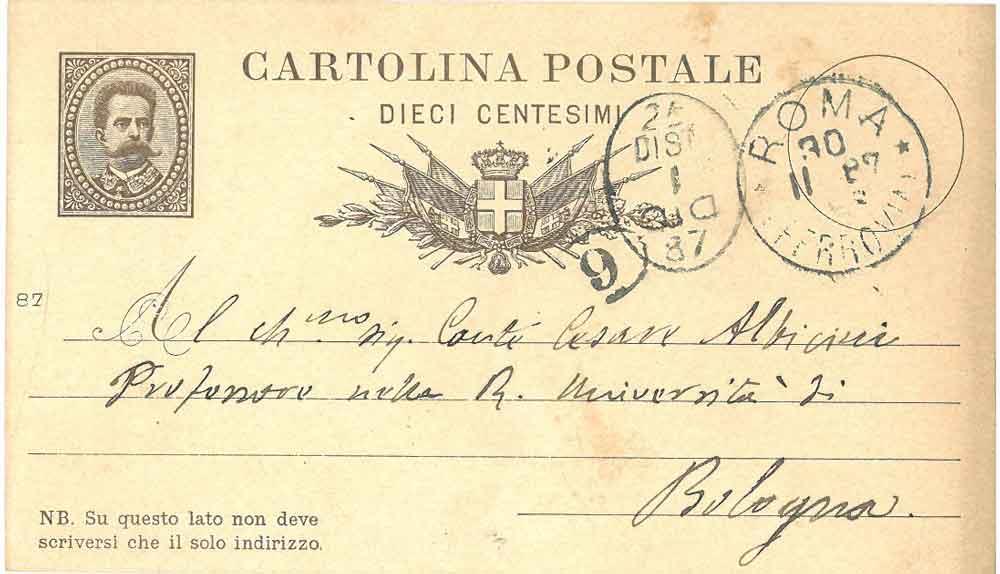 CARTOLINA POSTALE
DIECI CENTESIMI
25
DISTR
1
DIC
87
ROMA
30
11 87
FERROVIA
9
87
Al ch.mo sig. Conte Cesare Albicini
Professore nella R. Università di
Bologna.
NB. Su questo lato non deve
scriversi che il solo indirizzo.